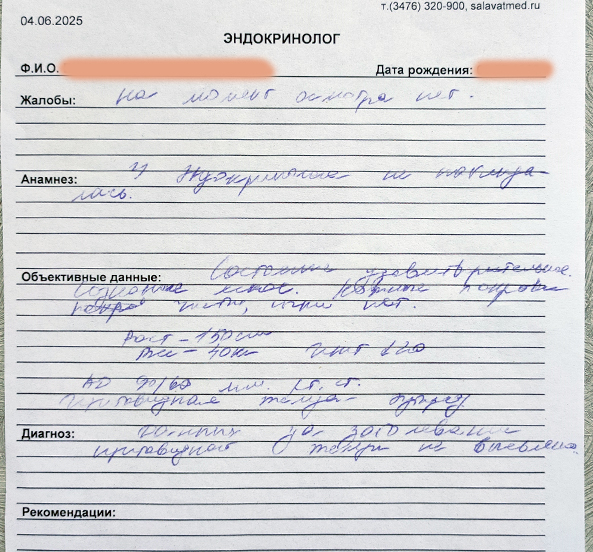 т.(3476) 320-900, salavatmed.ru
04.06.2025
ЭНДОКРИНОЛОГ
Ф.И.О.
Дата рождения:
Жалобы: на момент осмотра нет.
Анамнез: у эндокринолога не наблюда-
лась.
Объективные данные: Состояние удовлетворительное.
Сознание ясное. Кожные покровы
чисты, нет.
Рост - 150 см
Вес - 40 кг ИМТ
АД 90/60 мм. рт. ст.
Щитовидная железа -
Диагноз: данных за заболевание
щитовидной железы не выявлено.
Рекомендации: